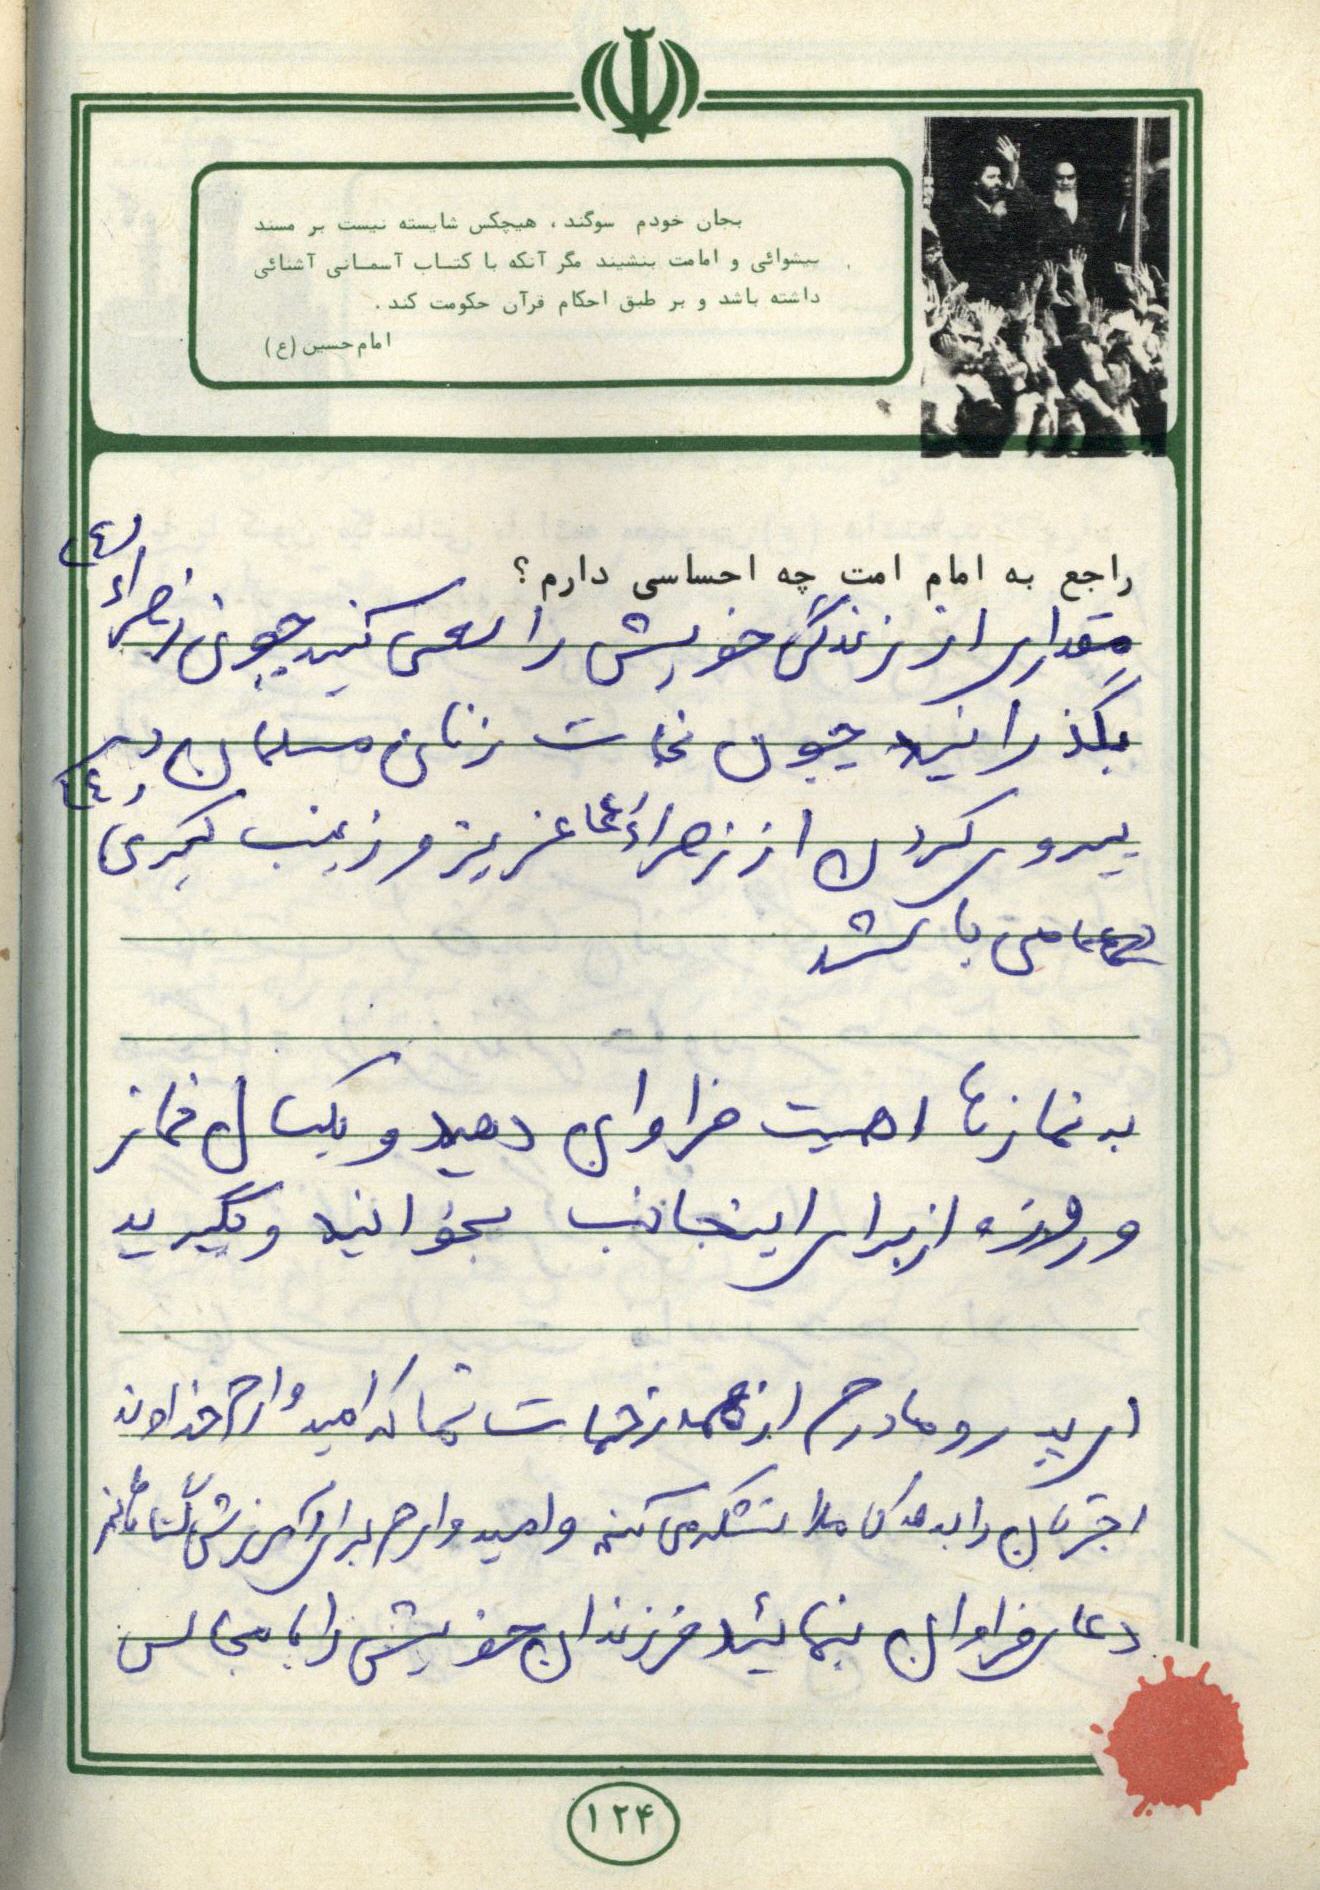 بجان خودم سوگند ، هیچکس شایسته نیست بر مسند
پیشوائی و امامت بنشیند مگر آنکه با کتاب آسمانی آشنائی
داشته باشد و بر طبق احکام قرآن حکومت کند .
امام حسین (ع)
راجع به امام امت چه احساسی دارم ؟
مقداری از زندگی خویش را سعی کنید چون زهراء (ع)
بگذرانید چون نجات زنان مسلمان در
پیروی کردن از زهراء عزیز و زینب کبری (ع)
می باشد
به نمازها اهمیت فراوان دهید و یکسال نماز
و روزه از برای اینجانب بخوانید و بگیرید
ای پدر و مادرم از همه زحمات شما که امیدوارم خداوند
اجرتان را بدهد کاملا تشکر می کنم و امیدوارم برای آمرزش گناهانم
دعای فراوان بنمائید فرزندان خویش را با مجالس
۱۲۴